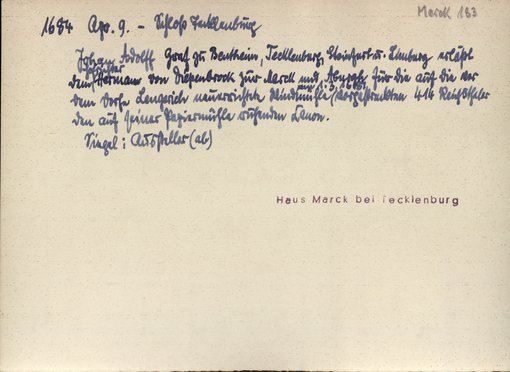 Marck 183
1684 Apr. 9. - Schloß Tecklenburg
Johan Adolff Graf zu Bentheim, Tecklenburg, Steinfurt u. Limburg erläßt
dem Hermann von Diepenbrock zur Marck und für die auf die vor
dem Dorfe Lengerich neuerrichtete Windmühle vorgestreckten 414 Reichsthaler
den auf seiner Papiermühle ruhenden Canon.
Siegel: Aussteller (ab)
Haus Marck bei Tecklenburg